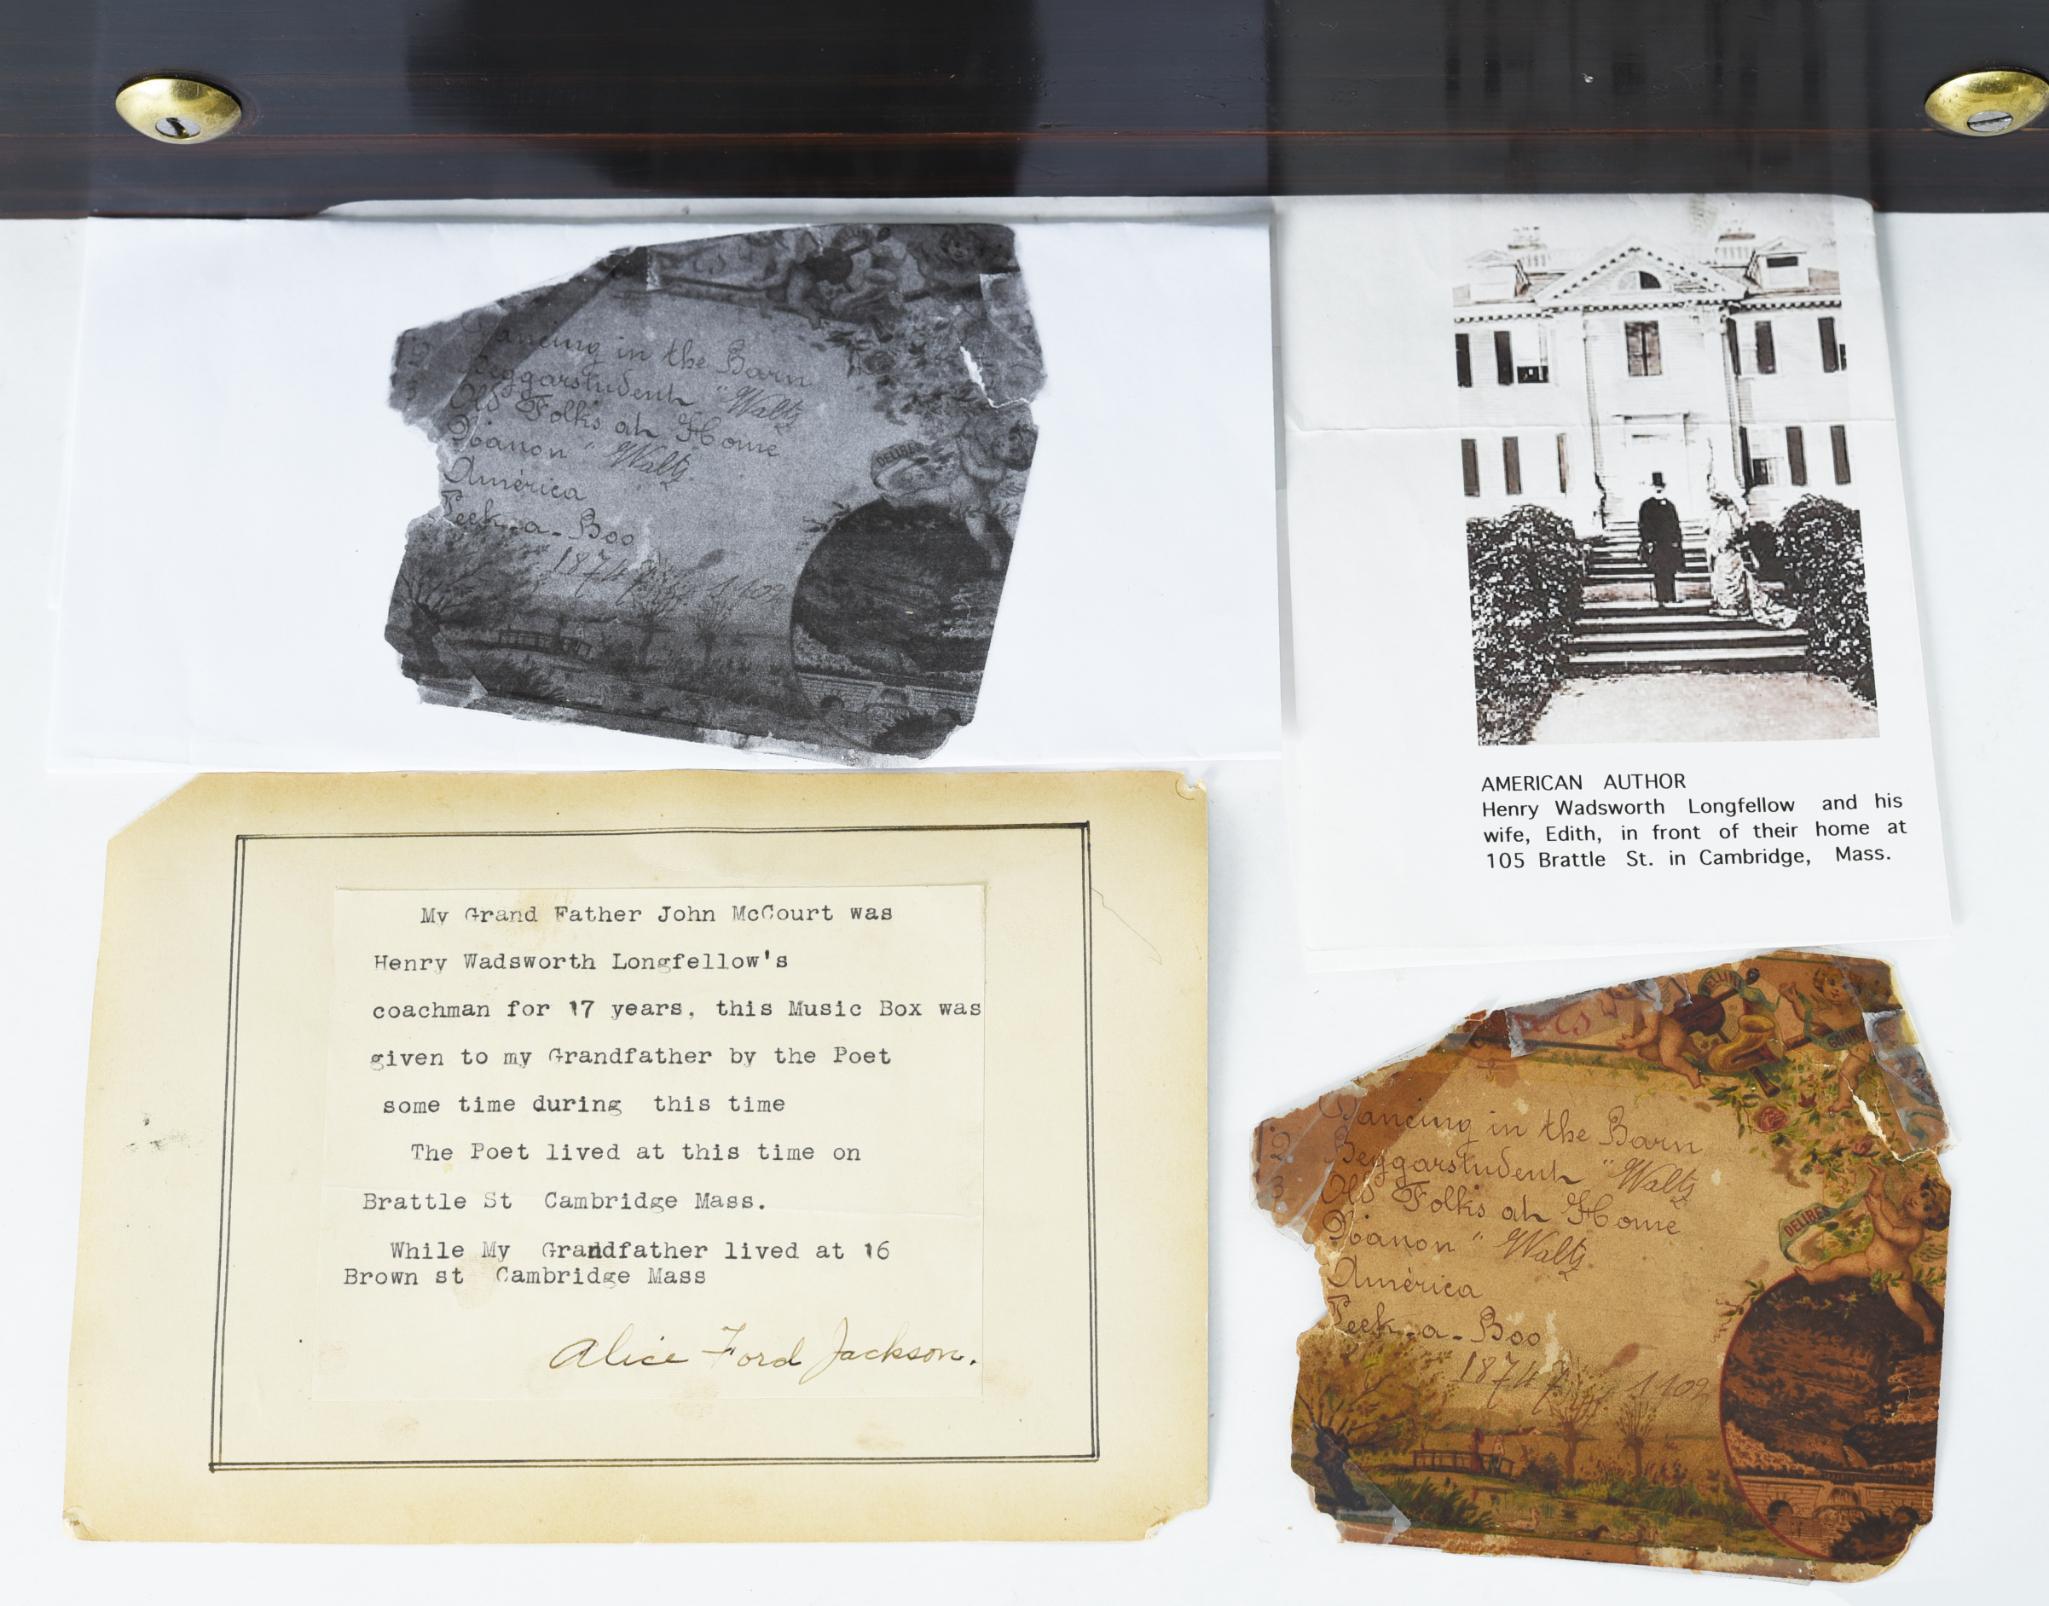 Dancing in the Barn
2 Beggarstudent "Waltz
3 Old Folks at Home
Nanon " Waltz
América
Peek-a-Boo
1874
DELIBES
AMERICAN AUTHOR
Henry Wadsworth Longfellow and his
wife, Edith, in front of their home at
105 Brattle St. in Cambridge, Mass.
My Grand Father John McCourt was
Henry Wadsworth Longfellow's
coachman for 17 years, this Music Box was
given to my Grandfather by the Poet
some time during this time
The Poet lived at this time on
Brattle St Cambridge Mass.
While My Grandfather lived at 16
Brown st Cambridge Mass
Alice Ford Jackson.
Dancing in the Barn
2 Beggarstudent "Waltz
3 Old Folks at Home
Nanon " Waltz
América
Peek-a-Boo
1874
DELIBES